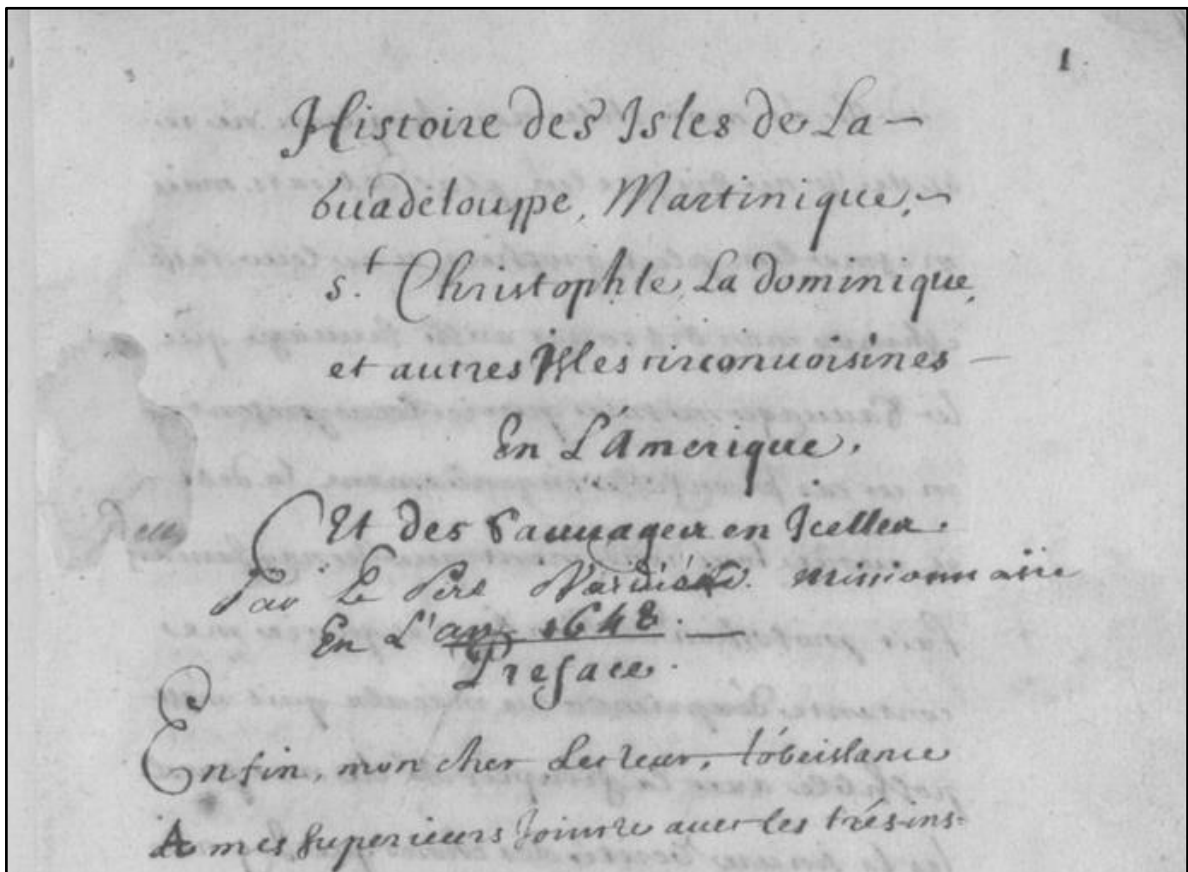 1.
Histoire des Isles de La-
Guadelouppe, Martinique,-
s.t Christophle, La dominique,
et autres Isles circonuoisines -
En L'Amerique.
Et des Sauuages en Icelles.
Par Le Pere missionnaire
En L'an 1648.
Preface.
Enfin, mon cher Lecteur, l'obeissance
A mes superieurs Jointe auec les trés-ins-